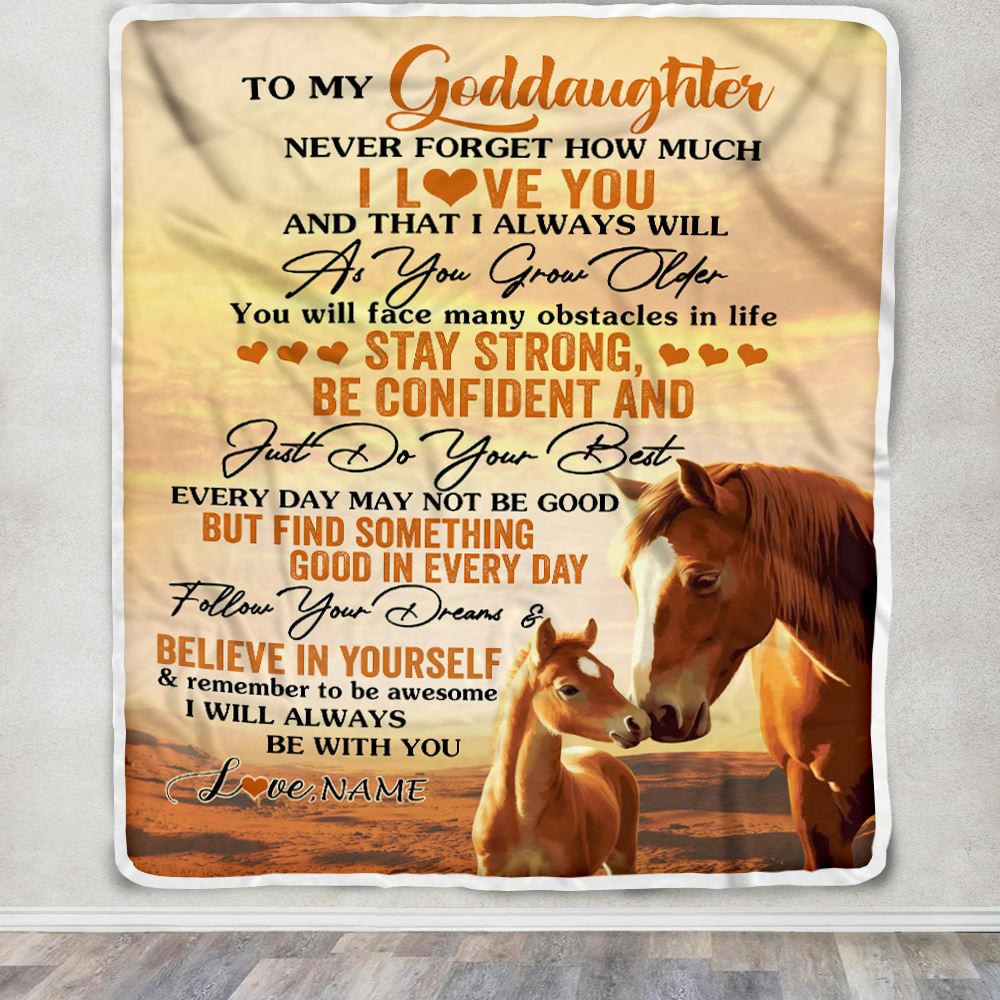 TO MY Goddaughter
NEVER FORGET HOW MUCH
I LOVE YOU
AND THAT I ALWAYS WILL
As You Grow Older
You will face many obstacles in life
STAY STRONG,
BE CONFIDENT AND
Just Do Your Best
EVERY DAY MAY NOT BE GOOD
BUT FIND SOMETHING
GOOD IN EVERY DAY
Follow Your Dreams &
BELIEVE IN YOURSELF
& remember to be awesome
I WILL ALWAYS
BE WITH YOU
Love, NAME